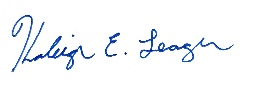 Kaleigh E. Leager